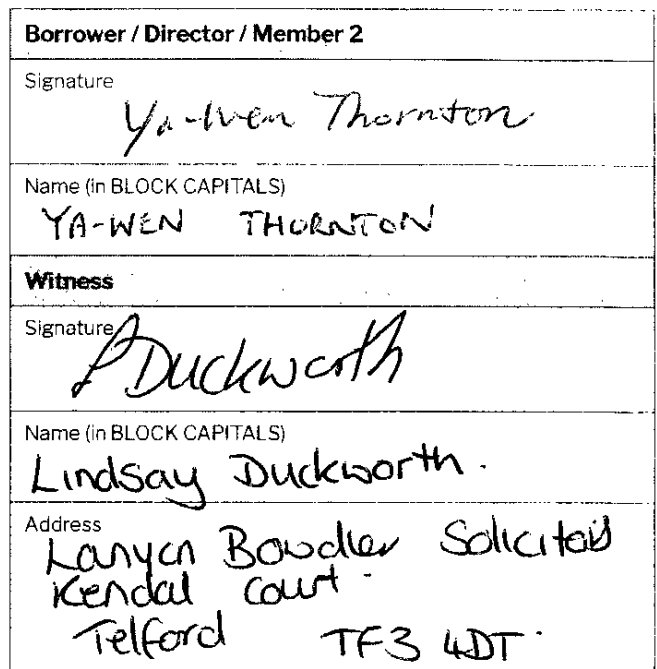 Borrower / Director / Member 2
Signature
Ya-Wen Thornton
Name (in BLOCK CAPITALS)
YA-WEN THORNTON
Witness
Signature
LDuckworth
Name (in BLOCK CAPITALS)
Lindsay Duckworth.
Address
Lanyon Bowdler Solicitors
Kendal Court.
Telford TF3 4DT.